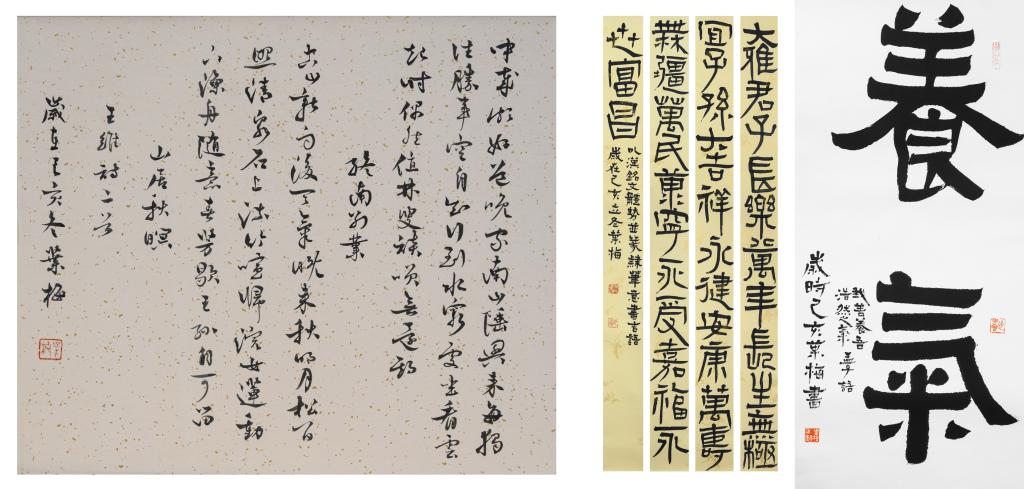 中歲頗好道晚家南山陲興来每獨
往勝事空自知行到水窮處坐看雲
起時偶然值林叟談笑無還期
終南別業
空山新雨後天氣晚来秋明月松間
照清泉石上流竹喧歸浣女蓮動
下漁舟随意春芳歇王孫自可留
山居秋暝
王維詩二首
歲在己亥冬葉梅
大雅君子長樂萬年長生無極
宜子孫大吉祥永健安康萬壽
無疆萬民康寧永受嘉福永
世富昌
以漢銘文體勢並篆隸筆意書吉語
歲在己亥立冬葉梅
養氣
我善養吾
浩然之氣 孟子語
歲時己亥葉梅書